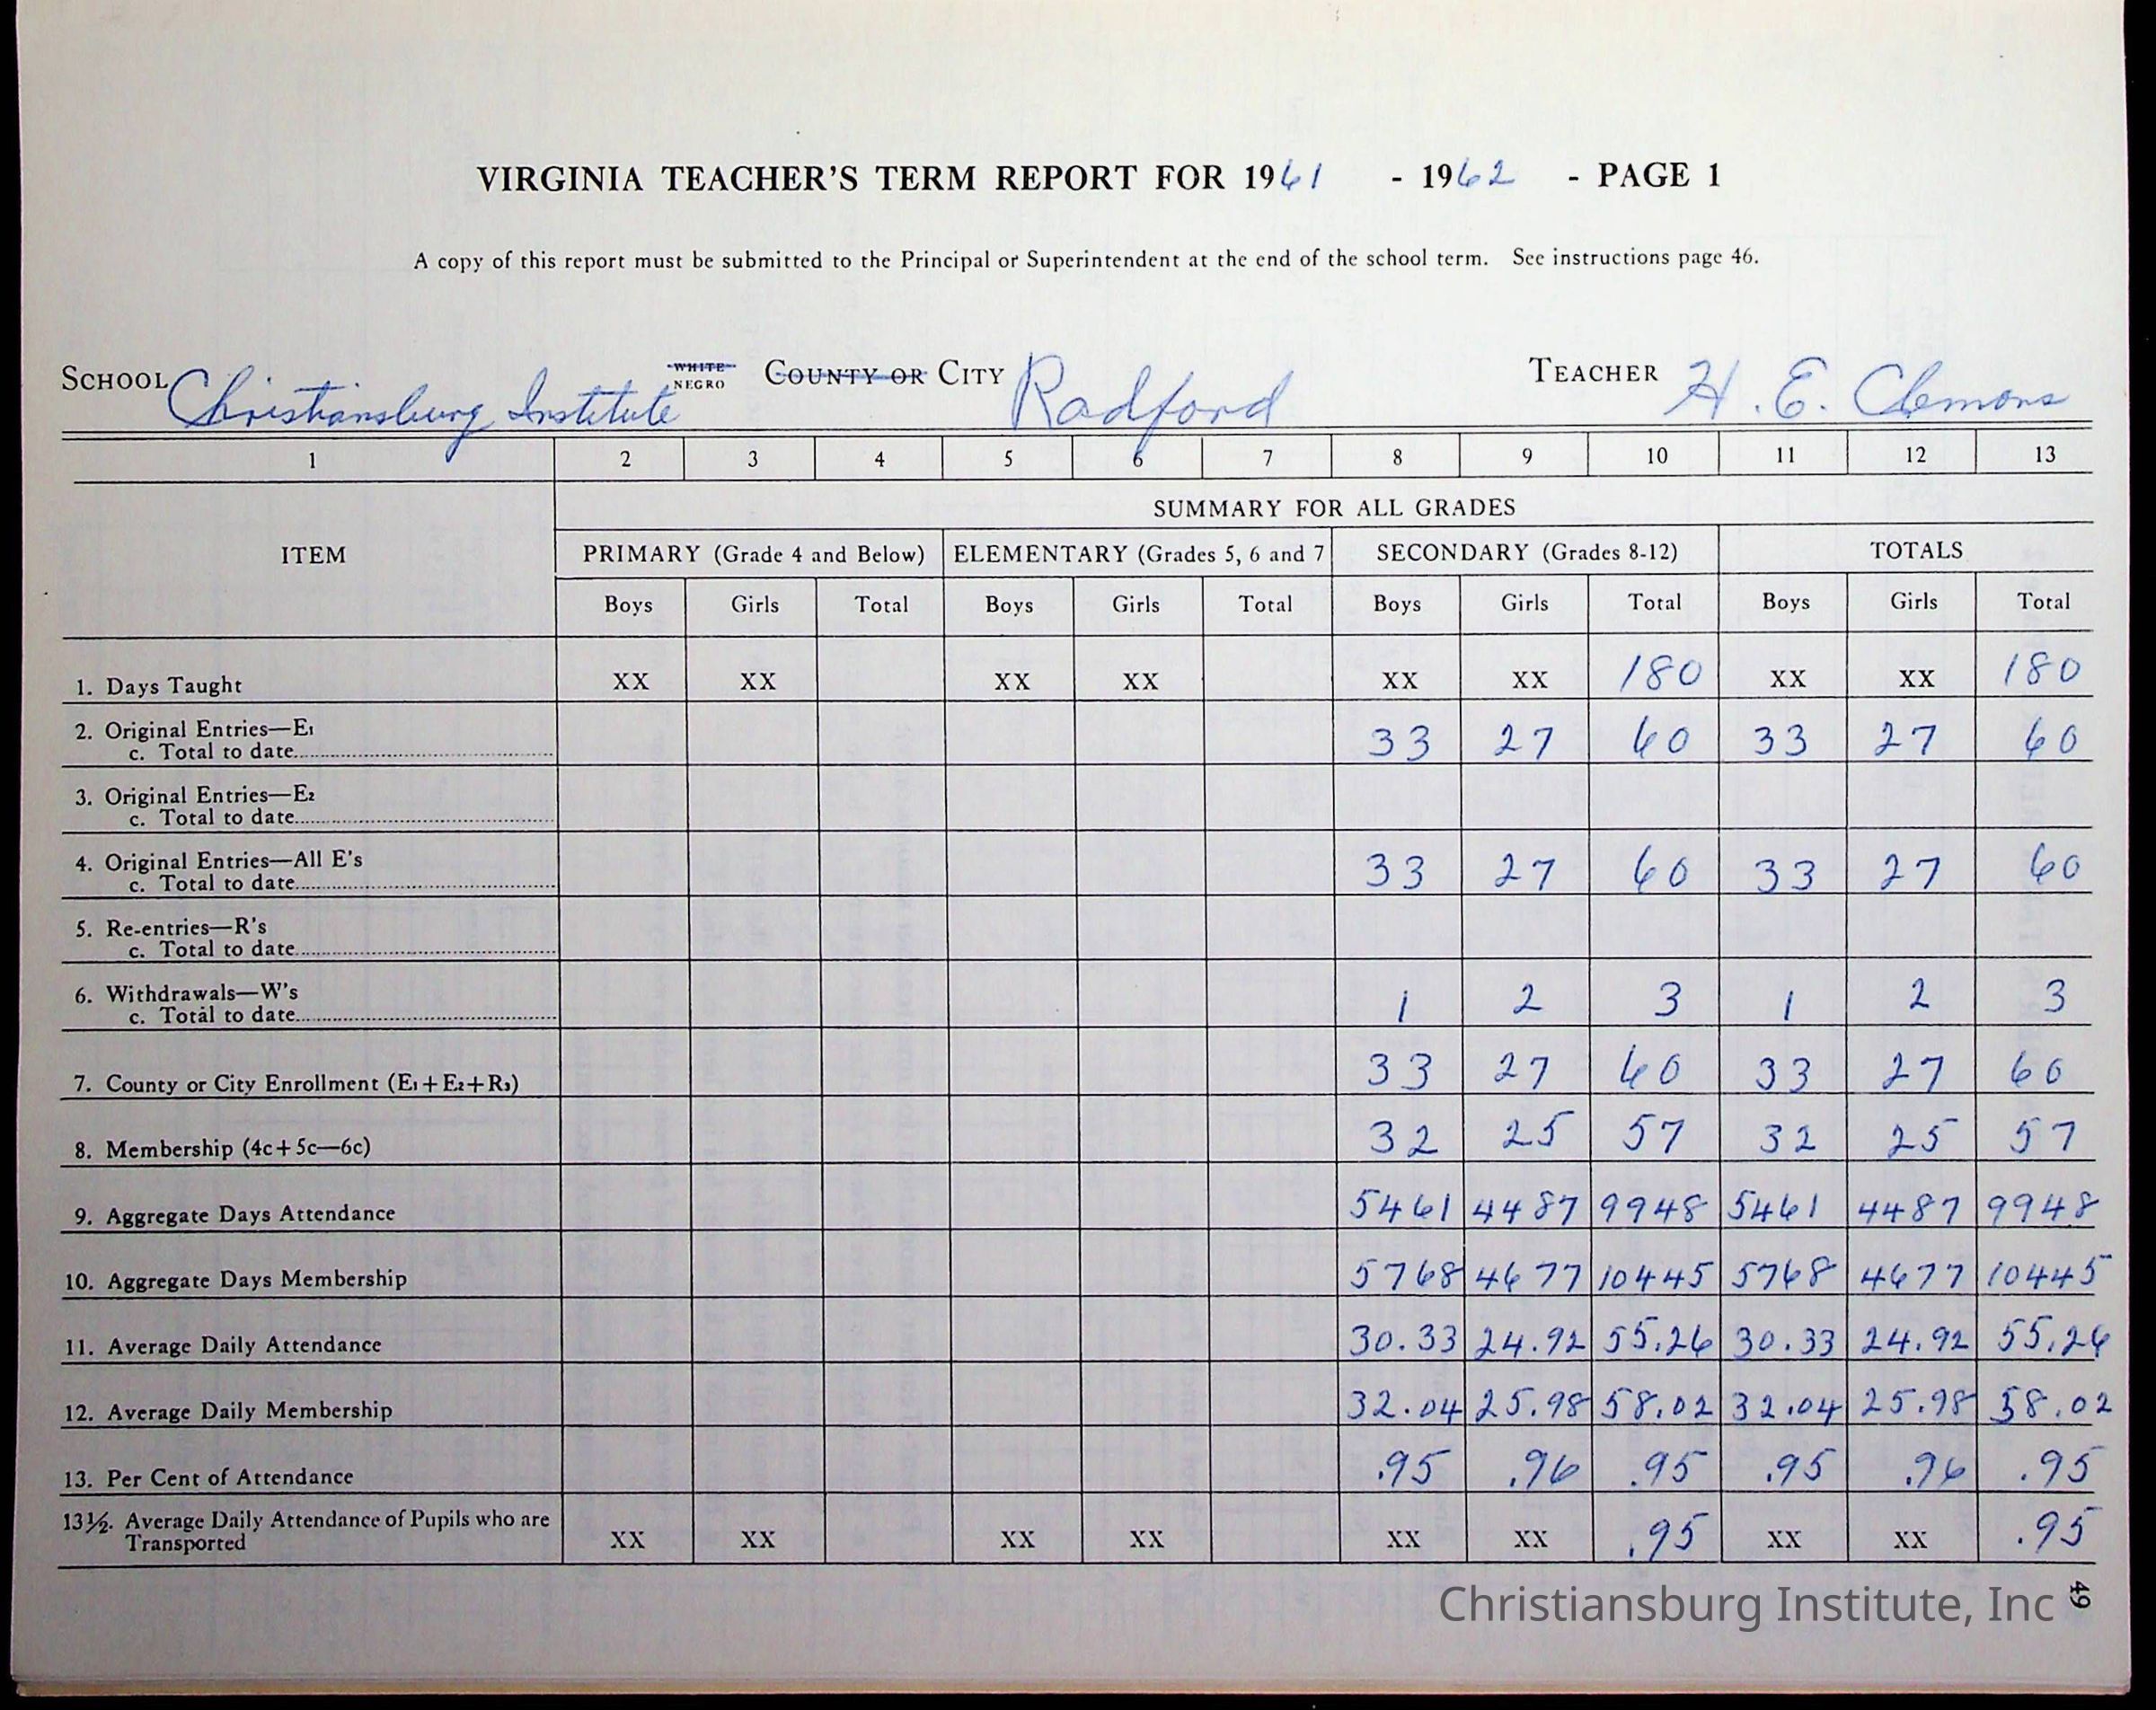 VIRGINIA TEACHER'S TERM REPORT FOR 1961 - 1962 - PAGE 1
A copy of this report must be submitted to the Principal or Superintendent at the end of the school term. See instructions page 46.
SCHOOL Christiansburg Institute WHITE NEGRO COUNTY OR CITY Radford TEACHER H. E. Clemons
1 2 3 4 5 6 7 8 9 10 11 12 13
SUMMARY FOR ALL GRADES
ITEM PRIMARY (Grade 4 and Below) ELEMENTARY (Grades 5, 6 and 7 SECONDARY (Grades 8-12) TOTALS
Boys Girls Total Boys Girls Total Boys Girls Total Boys Girls Total
1. Days Taught XX XX XX XX XX XX 180 XX XX 180
2. Original Entries—E1
c. Total to date 33 27 60 33 27 60
3. Original Entries—E2
c. Total to date
4. Original Entries—All E's
c. Total to date 33 27 60 33 27 60
5. Re-entries—R's
c. Total to date
6. Withdrawals—W's
c. Total to date 1 2 3 1 2 3
7. County or City Enrollment (E1+E2+R3) 33 27 60 33 27 60
8. Membership (4c+5c—6c) 32 25 57 32 25 57
9. Aggregate Days Attendance 5461 4487 9948 5461 4487 9948
10. Aggregate Days Membership 5768 4677 10445 5768 4677 10445
11. Average Daily Attendance 30.33 24.92 55.26 30.33 24.92 55.26
12. Average Daily Membership 32.04 25.98 58.02 32.04 25.98 58.02
13. Per Cent of Attendance .95 .96 .95 .95 .96 .95
13½. Average Daily Attendance of Pupils who are
Transported XX XX XX XX XX XX .95 XX XX .95
Christiansburg Institute, Inc
49